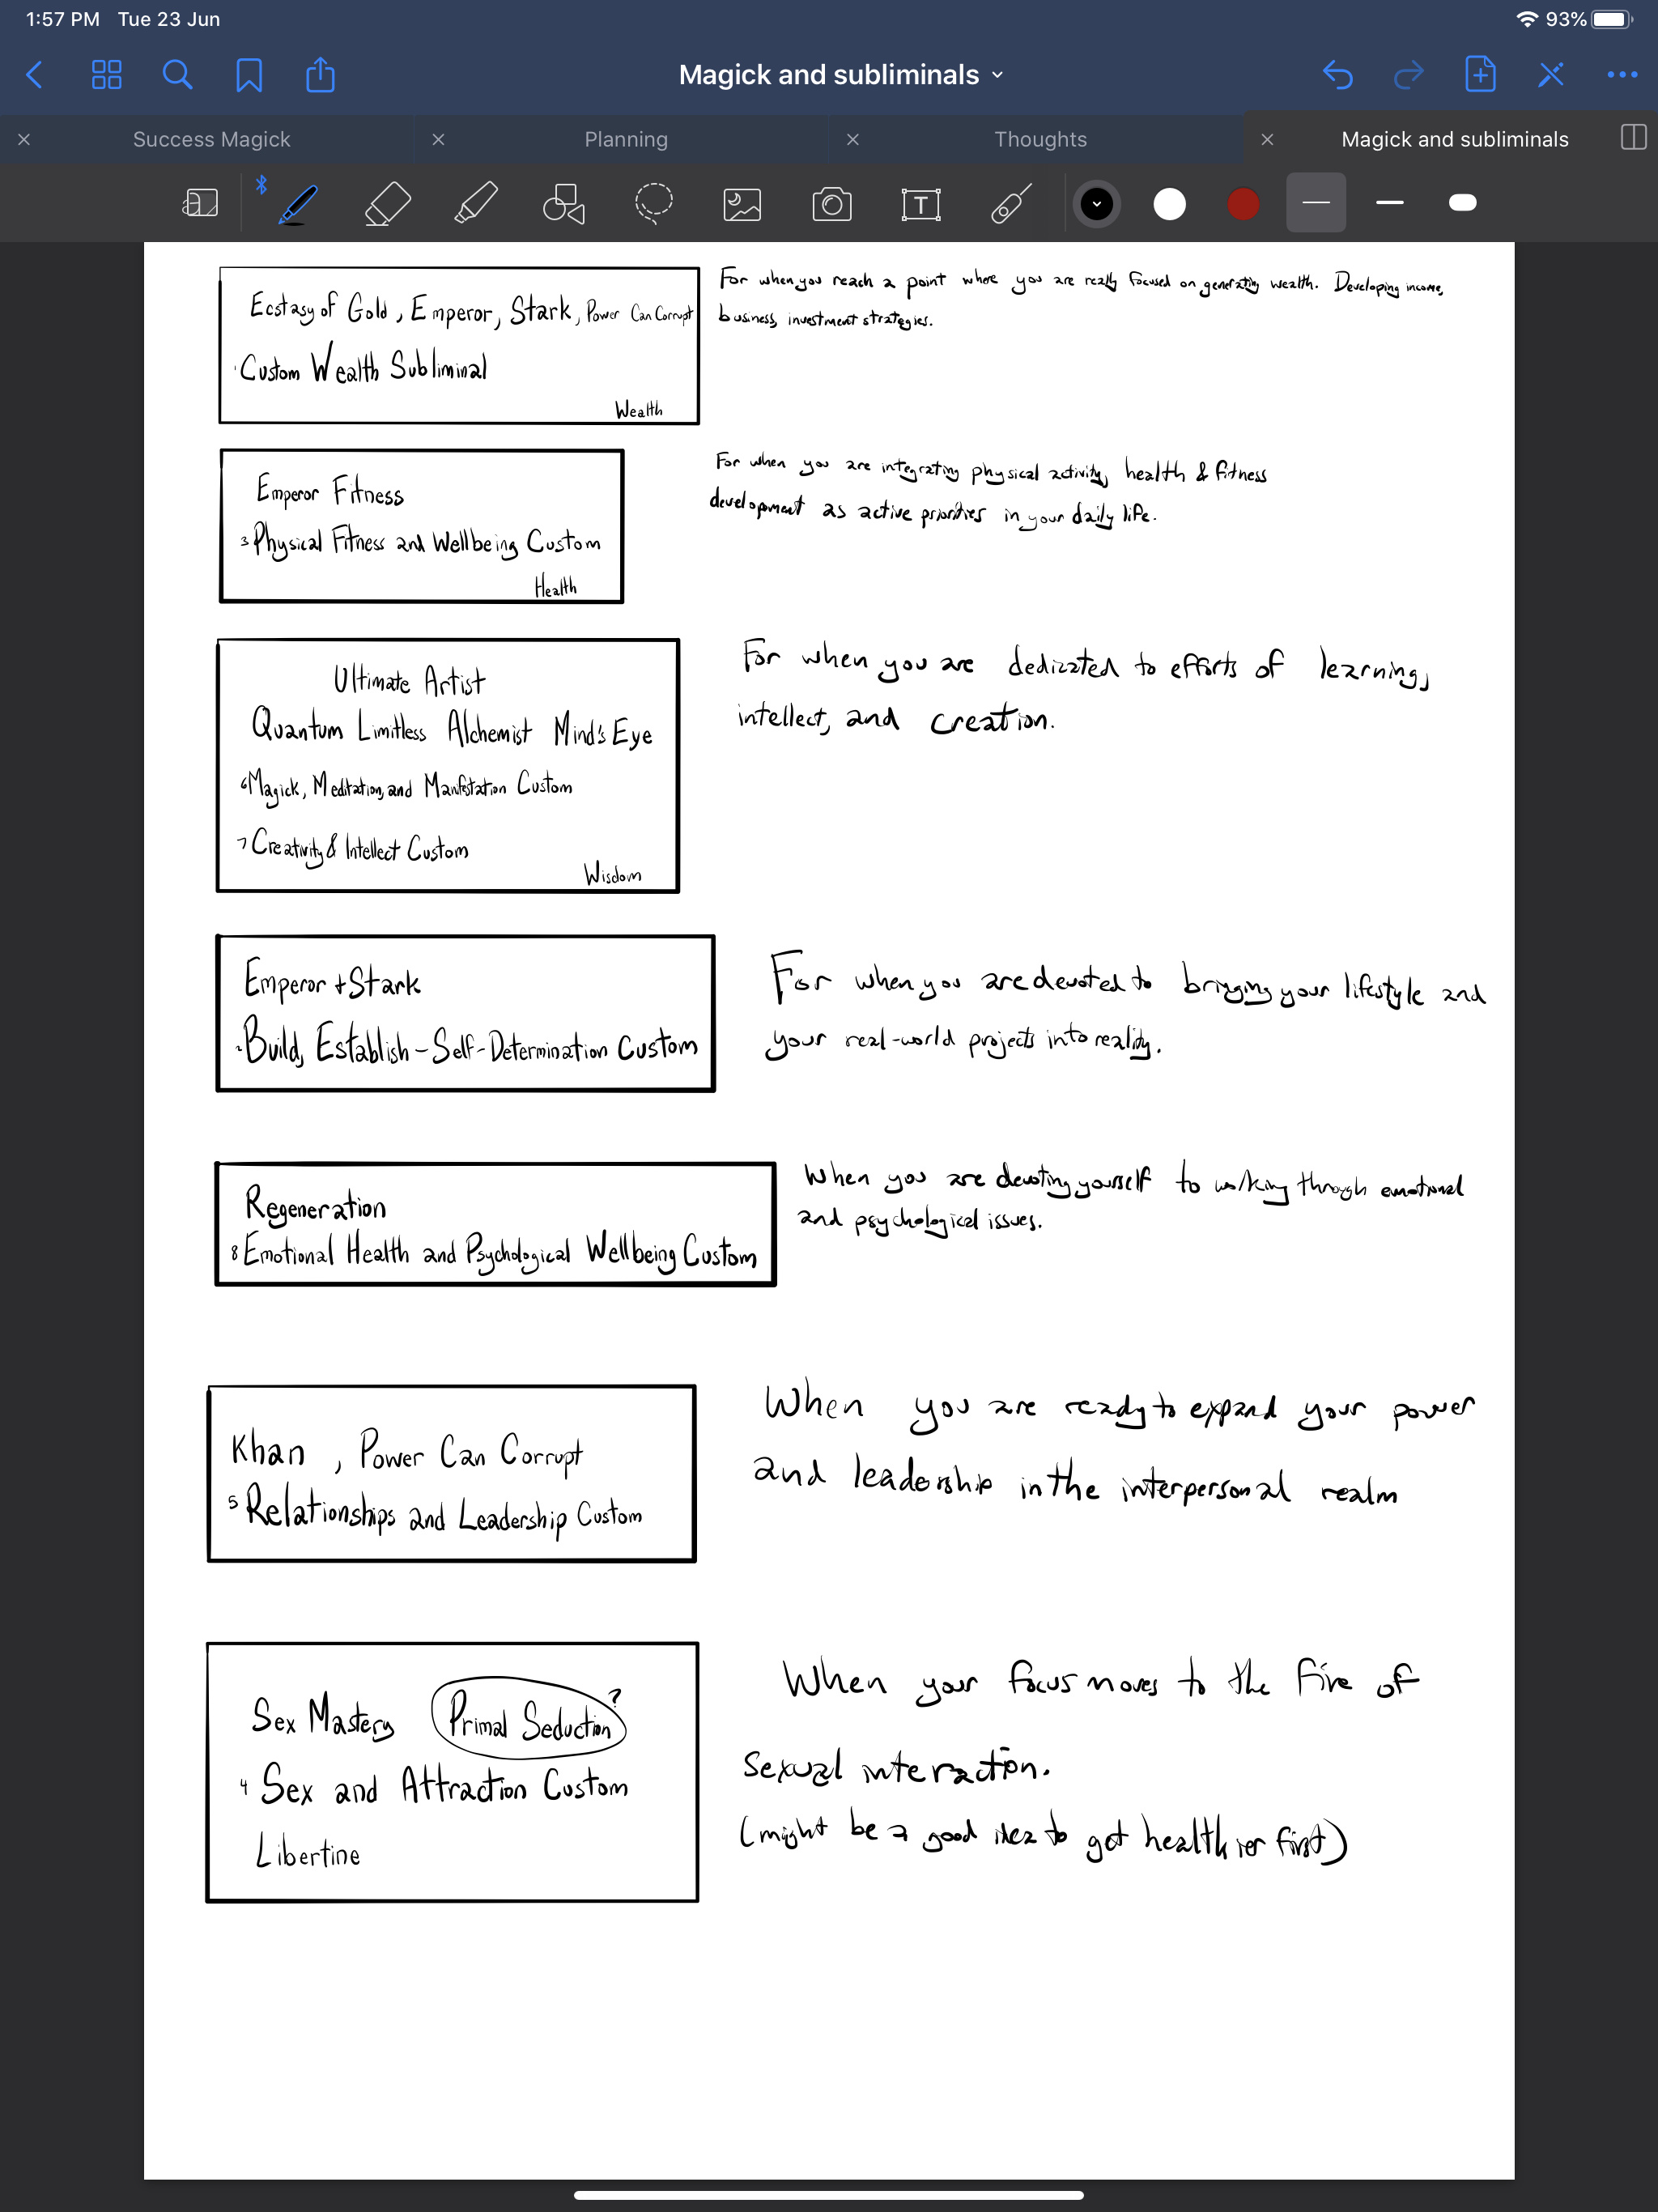 1:57 PM Tue 23 Jun 93%
Magick and subliminals
Success Magick Planning Thoughts Magick and subliminals
Ecstasy of Gold, Emperor, Stark, Power Can Corrupt
1 Custom Wealth Subliminal
Wealth
For when you reach a point where you are really focused on generating wealth. Developing income,
business, investment strategies.
Emperor Fitness
3 Physical Fitness and Wellbeing Custom
Health
For when you are integrating physical activity, health & fitness
development as active priorities in your daily life.
Ultimate Artist
Quantum Limitless Alchemist Mind's Eye
6 Magick, Meditation, and Manifestation Custom
7 Creativity & Intellect Custom
Wisdom
For when you are dedicated to efforts of learning,
intellect, and creation.
Emperor + Stark
2 Build, Establish - Self-Determination Custom
For when you are devoted to bringing your lifestyle and
your real-world projects into reality.
Regeneration
8 Emotional Health and Psychological Wellbeing Custom
When you are devoting yourself to working through emotional
and psychological issues.
Khan, Power Can Corrupt
5 Relationships and Leadership Custom
When you are ready to expand your power
and leadership in the interpersonal realm
Sex Mastery Primal Seduction?
4 Sex and Attraction Custom
Libertine
When your focus moves to the fire of
sexual interaction.
(might be a good idea to get healthier first)